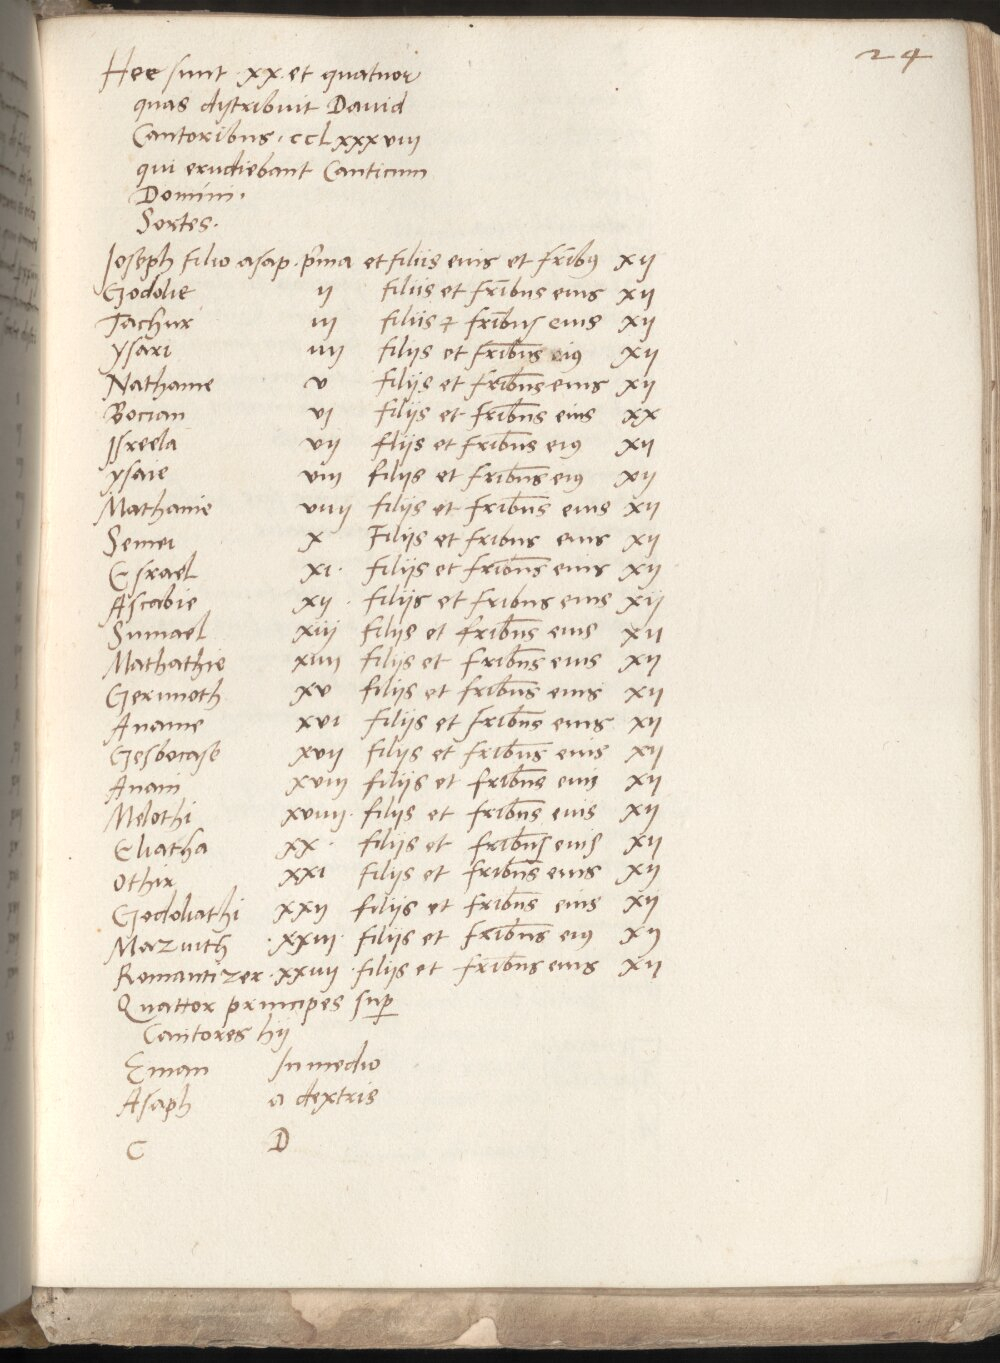 24
Hee sunt · xx · et quatuor
quas dystribuit Dauid
Cantoribus · ccLxxxviii
qui erudiebant Canticum
Domini ·
Sortes ·
Joseph filio asap · p̄ma et filiis eius et fr̄ibꝰ xij
Godolie ij filiis et fr̄ibus eius xij
Jachur iij filiis ⁊ fr̄ibus eius xij
ysari iiij filijs et frib̄us eiꝰ xij
Nathanie v filijs et frib̄us eius xij
Bocian vj filijs et frib̄us eius xx
Jsreela vij flijs et frib̄us eiꝰ xij
ysaie viij filijs et frib̄us eiꝰ xij
Mathanie viiij filijs et frib̄us eius xij
Semei x Filijs et fribus eius xij
Esrael xi · filijs et frib̄us eius xij
Ascabie xij · filijs et fribus eius xij
Sumael xiij filijs et frib̄us eius xij
Mathathie xiiij filijs et frib̄us eius xij
Gerimoth xv filijs et frib̄us eius xij
Ananie xvi filijs et frib̄us eius xij
Gesbocase xvij filijs et frib̄us eius xij
Anani xviij filijs et frib̄us eius xij
Melothi xviiij · filijs et frib̄us eius xij
Eliatha xx · filijs et frib̄us eius xij
Othir xxi filijs et frib̄us eius xij
Godoliathi xxij filijs et frib̄us eius xij
Mazuith · xxiij · filijs et frib̄us eiꝰ xij
Romantizer · xxiiij · filijs et frib̄us eius xij
Quattor principes suꝑ
Cantores hij
Eman In medio
Asaph a dextris
C D